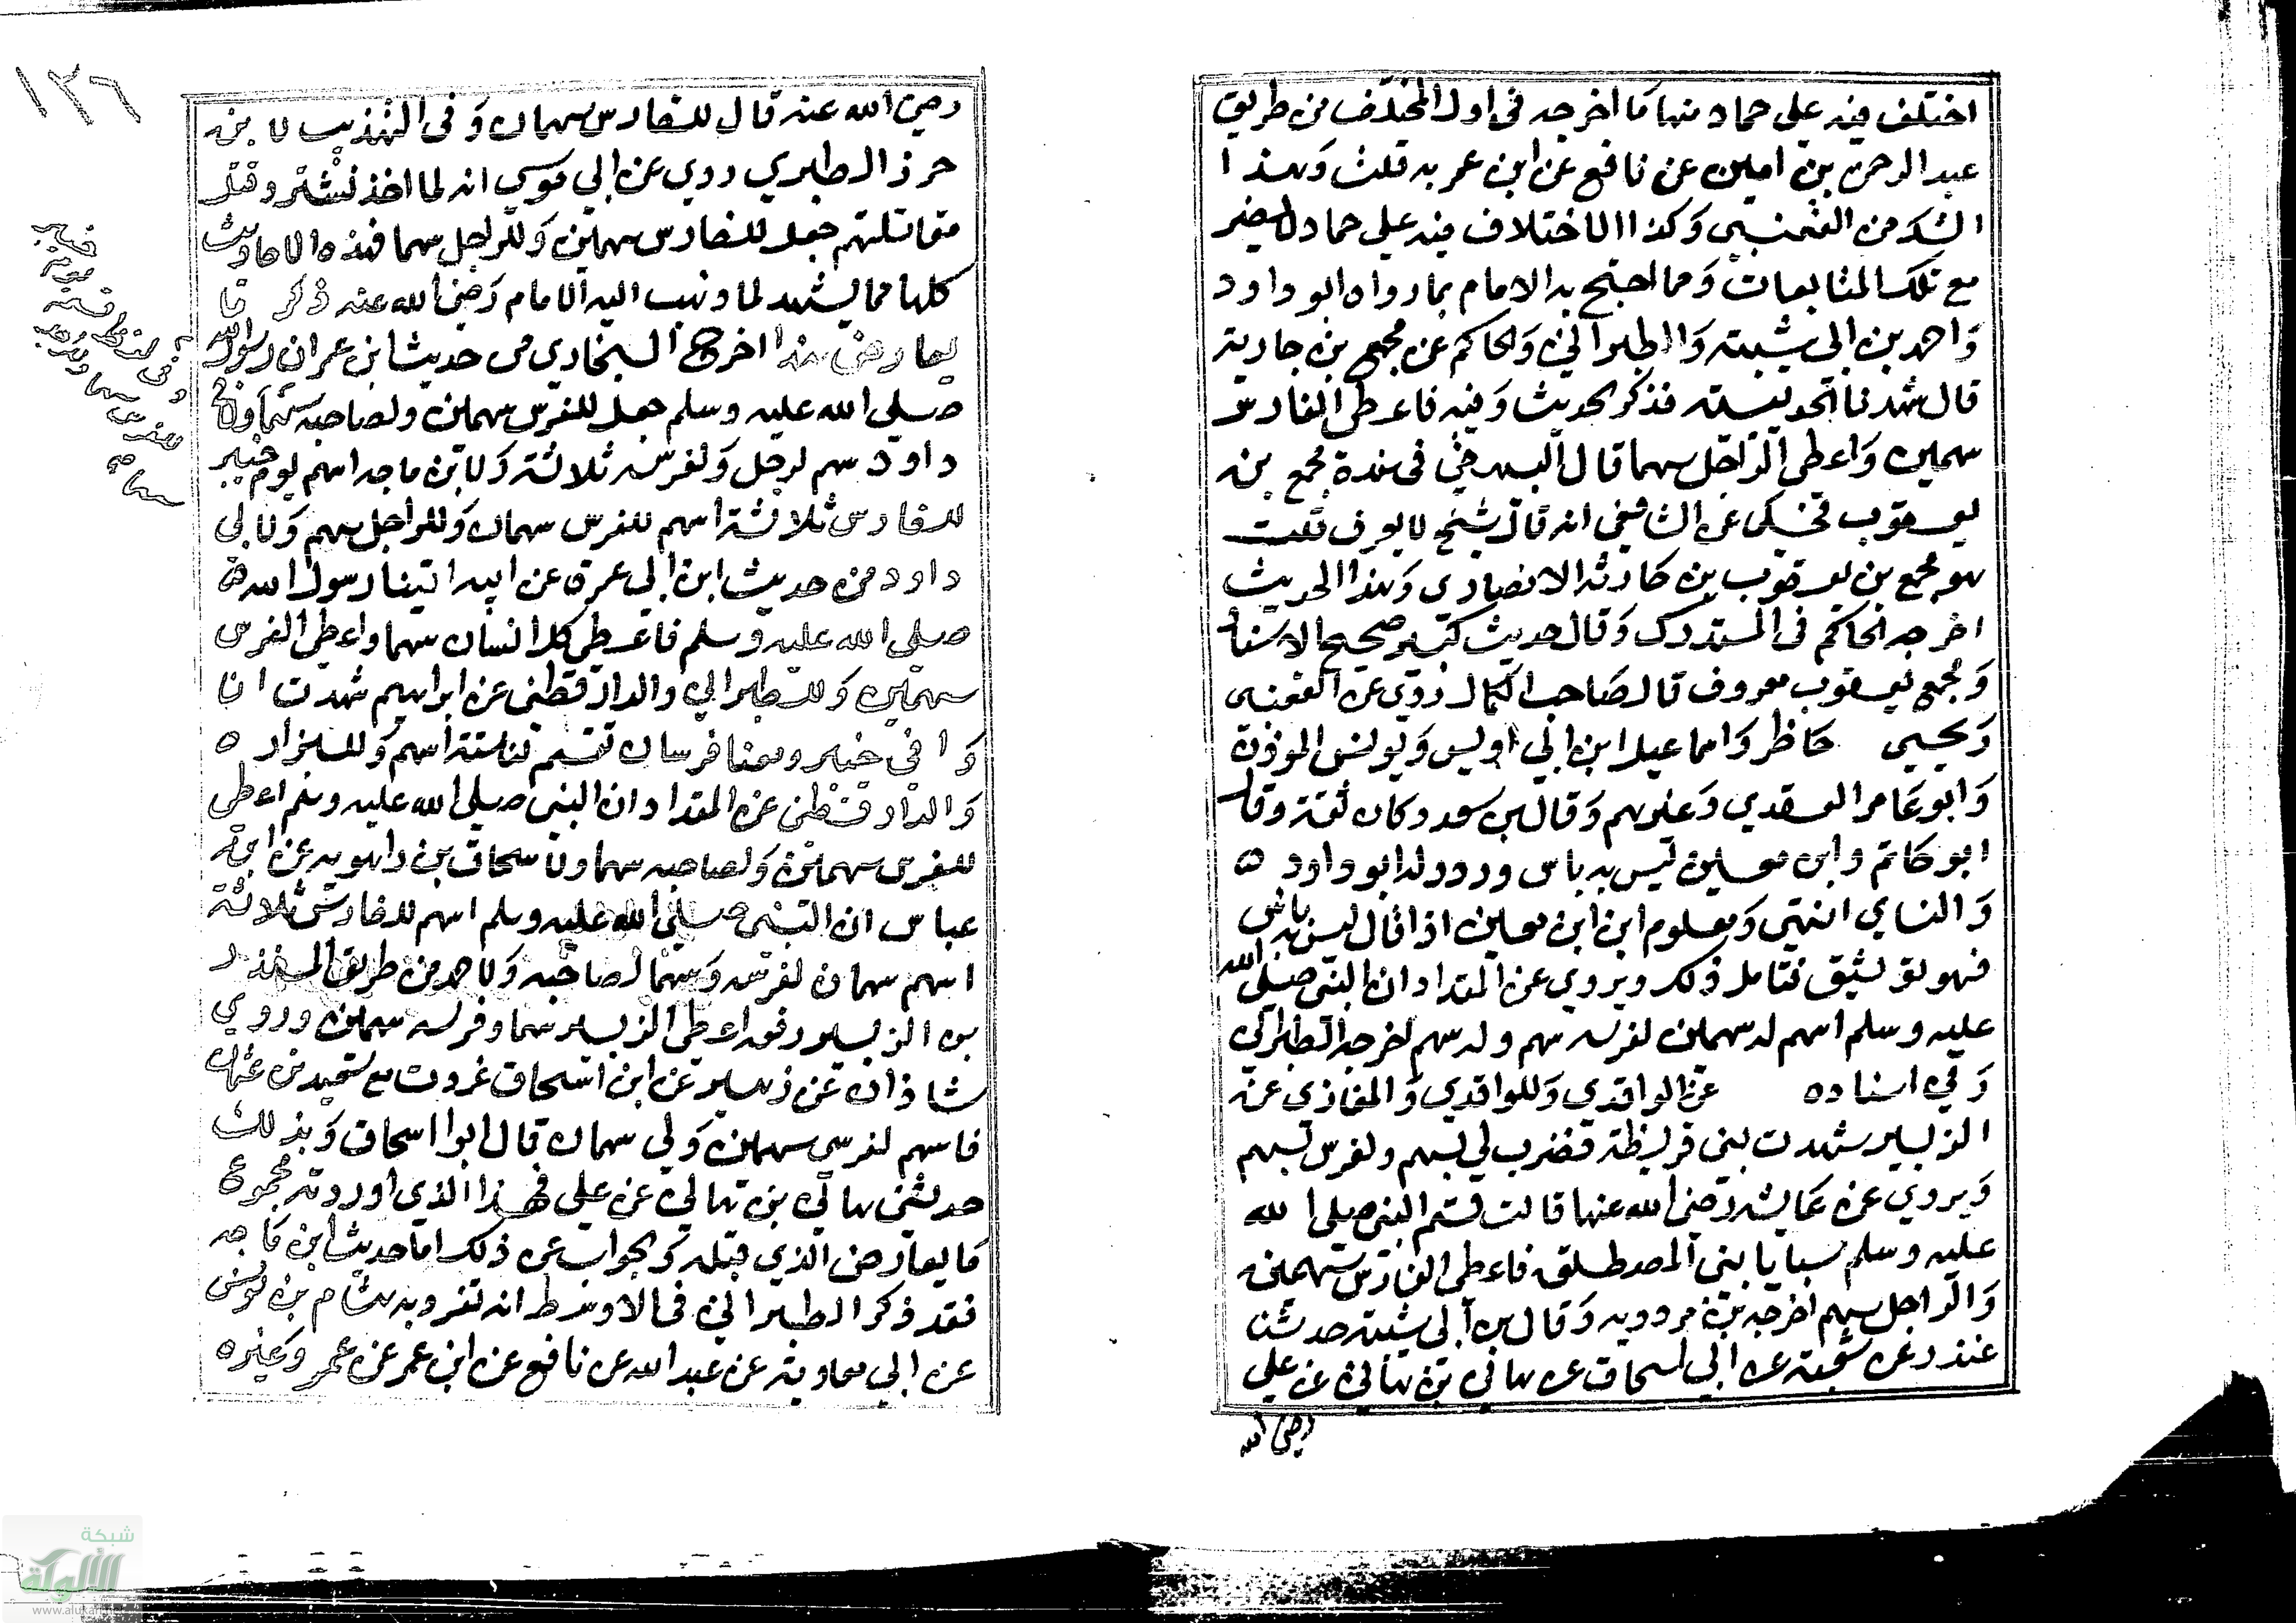 اختلف فيه على حماد منها ما اخرجه فى اول المختلف من طريق
عبد الرحمن بن امين عن نافع عن ابن عمر به قلت وهذا
الشك من القعنبي وكذا الاختلاف فيه على حماد لا يضر
مع تلك المتابعات ومما احتج به الامام بما رواه ابو داود
واحمد بن ابي شيبته والطبراني والحاكم عن مجمع بن جارية
قال شهدنا الحديبيته فذكر الحديث وفيه فاعطى الفارس
سهمين واعطى الراجل سهما قال البيهقي فى سنده مجمع بن
يعقوب فحكى عن الشافعي انه قال شيخ لا يعرف قلت
هو مجمع بن يعقوب بن حارثه الانصارى وهذا الحديث
اخرجه الحاكم فى المستدرك وقال حديث كبير صحيح الاسنا
ومجمع بن يعقوب معروف قال صاحب الكمال روى عن القعنبى
ويحيى حاظر واسماعيل ابن ابي اويس ويونس المؤذن
وابو عامر العقدي وغيرهم وقال بن سعد وكان ثقة وقال
ابو حاتم وابن معين ليس به باس وروو له ابو داود ه
والنساي انتهى ومعلوم ابن ابن معين اذا قال ليس به باس
فهو توثيق فتامل ذلك ويروي عن المقداد ان النبى صلى الله
عليه وسلم اسهم له سهمين لفرسه سهم وله سهم اخرجه الطبراني
وفي اسناده عن الواقدي وللواقدي والمغازى عن
الزبير شهدت بنى قريظة فضرب لي بسهم ولفرسى بسهم
ويروي عن عايشه رضى الله عنها قالت قسم النبى صلى الله
عليه وسلم سبايا بنى المصطلق فاعطى الفارس سهمين
والراجل سهم اخرجه بن مردويه وقال بن ابي شيبته حدثنا
غندر عن شعبته عن ابي اسحاق عن هاني بن هاني عن علي
رضى الله
١٢٦
رضي الله عنه قال للفارس سهمان وفى التهذيب لا بن
جرر الطبري روي عن ابي موسي انه لما اخذ تستر وقتل
مقاتلتهم جعل للفارس سهمين وللراجل سهما فهذه الاحاديث
كلها مما يشهد لما ذهب اليه الامام رضي الله عنه ذكر ما
يعارض هذا اخرج البخاري من حديث ابن عمر ان رسول الله
صلى الله عليه وسلم جعل للفرس سهمين ولصاحبه سهما ولابى
داود سهم لرجل ولفرسه ثلاثة ولابن ماجه اسهم يوم خيبر
للفارس ثلاثة اسهم للفرس سهمان وللراجل سهم ولابي
داود من حديث ابن ابي عمرة عن ابيه اتينا رسول الله
صلى الله عليه وسلم فاعطى كل انسان سهما واعطى الفرس
سهمين وللطبراني والدارقطنى عن ابراهيم شهدت انا
وا فى خيبر ومعنا فرسان فقسم لنا ستة اسهم وللبزار ه
والدارقطنى عن المقداد ان النبى صلى الله عليه وسلم اعطى
للفرس سهمين ولصاحبه سهما ولاسحاق بن راهويه عن ابن
عباس ان النبى صلى الله عليه وسلم اسهم للفارس ثلاثة
اسهم سهمان لفرسه وسهما لصاحبه ولاحمد من طريق المنذر
بن الزبير رفعه اعطى الزبير سهما وفرسه سهمين وروي
شاذان عن زهير عن ابن اسحاق غزوت مع سعيد بن عثمان
فاسهم لفرسي سهمين ولي سهمان قال ابوا اسحاق وبذلك
حدثنى هاني بن هاني عن علي فهذا الذي اوردته مجموع
ما يعارض الذي قبله والجواب عن ذلك اما حديث ابن ماجه
فقد ذكر الطبراني فى الاوسط انه تفرد به هشام بن يونس
عن ابي معاوية عن عبد الله عن نافع عن ابن عمر عن عمر وغيره
شبكة
الألوكة